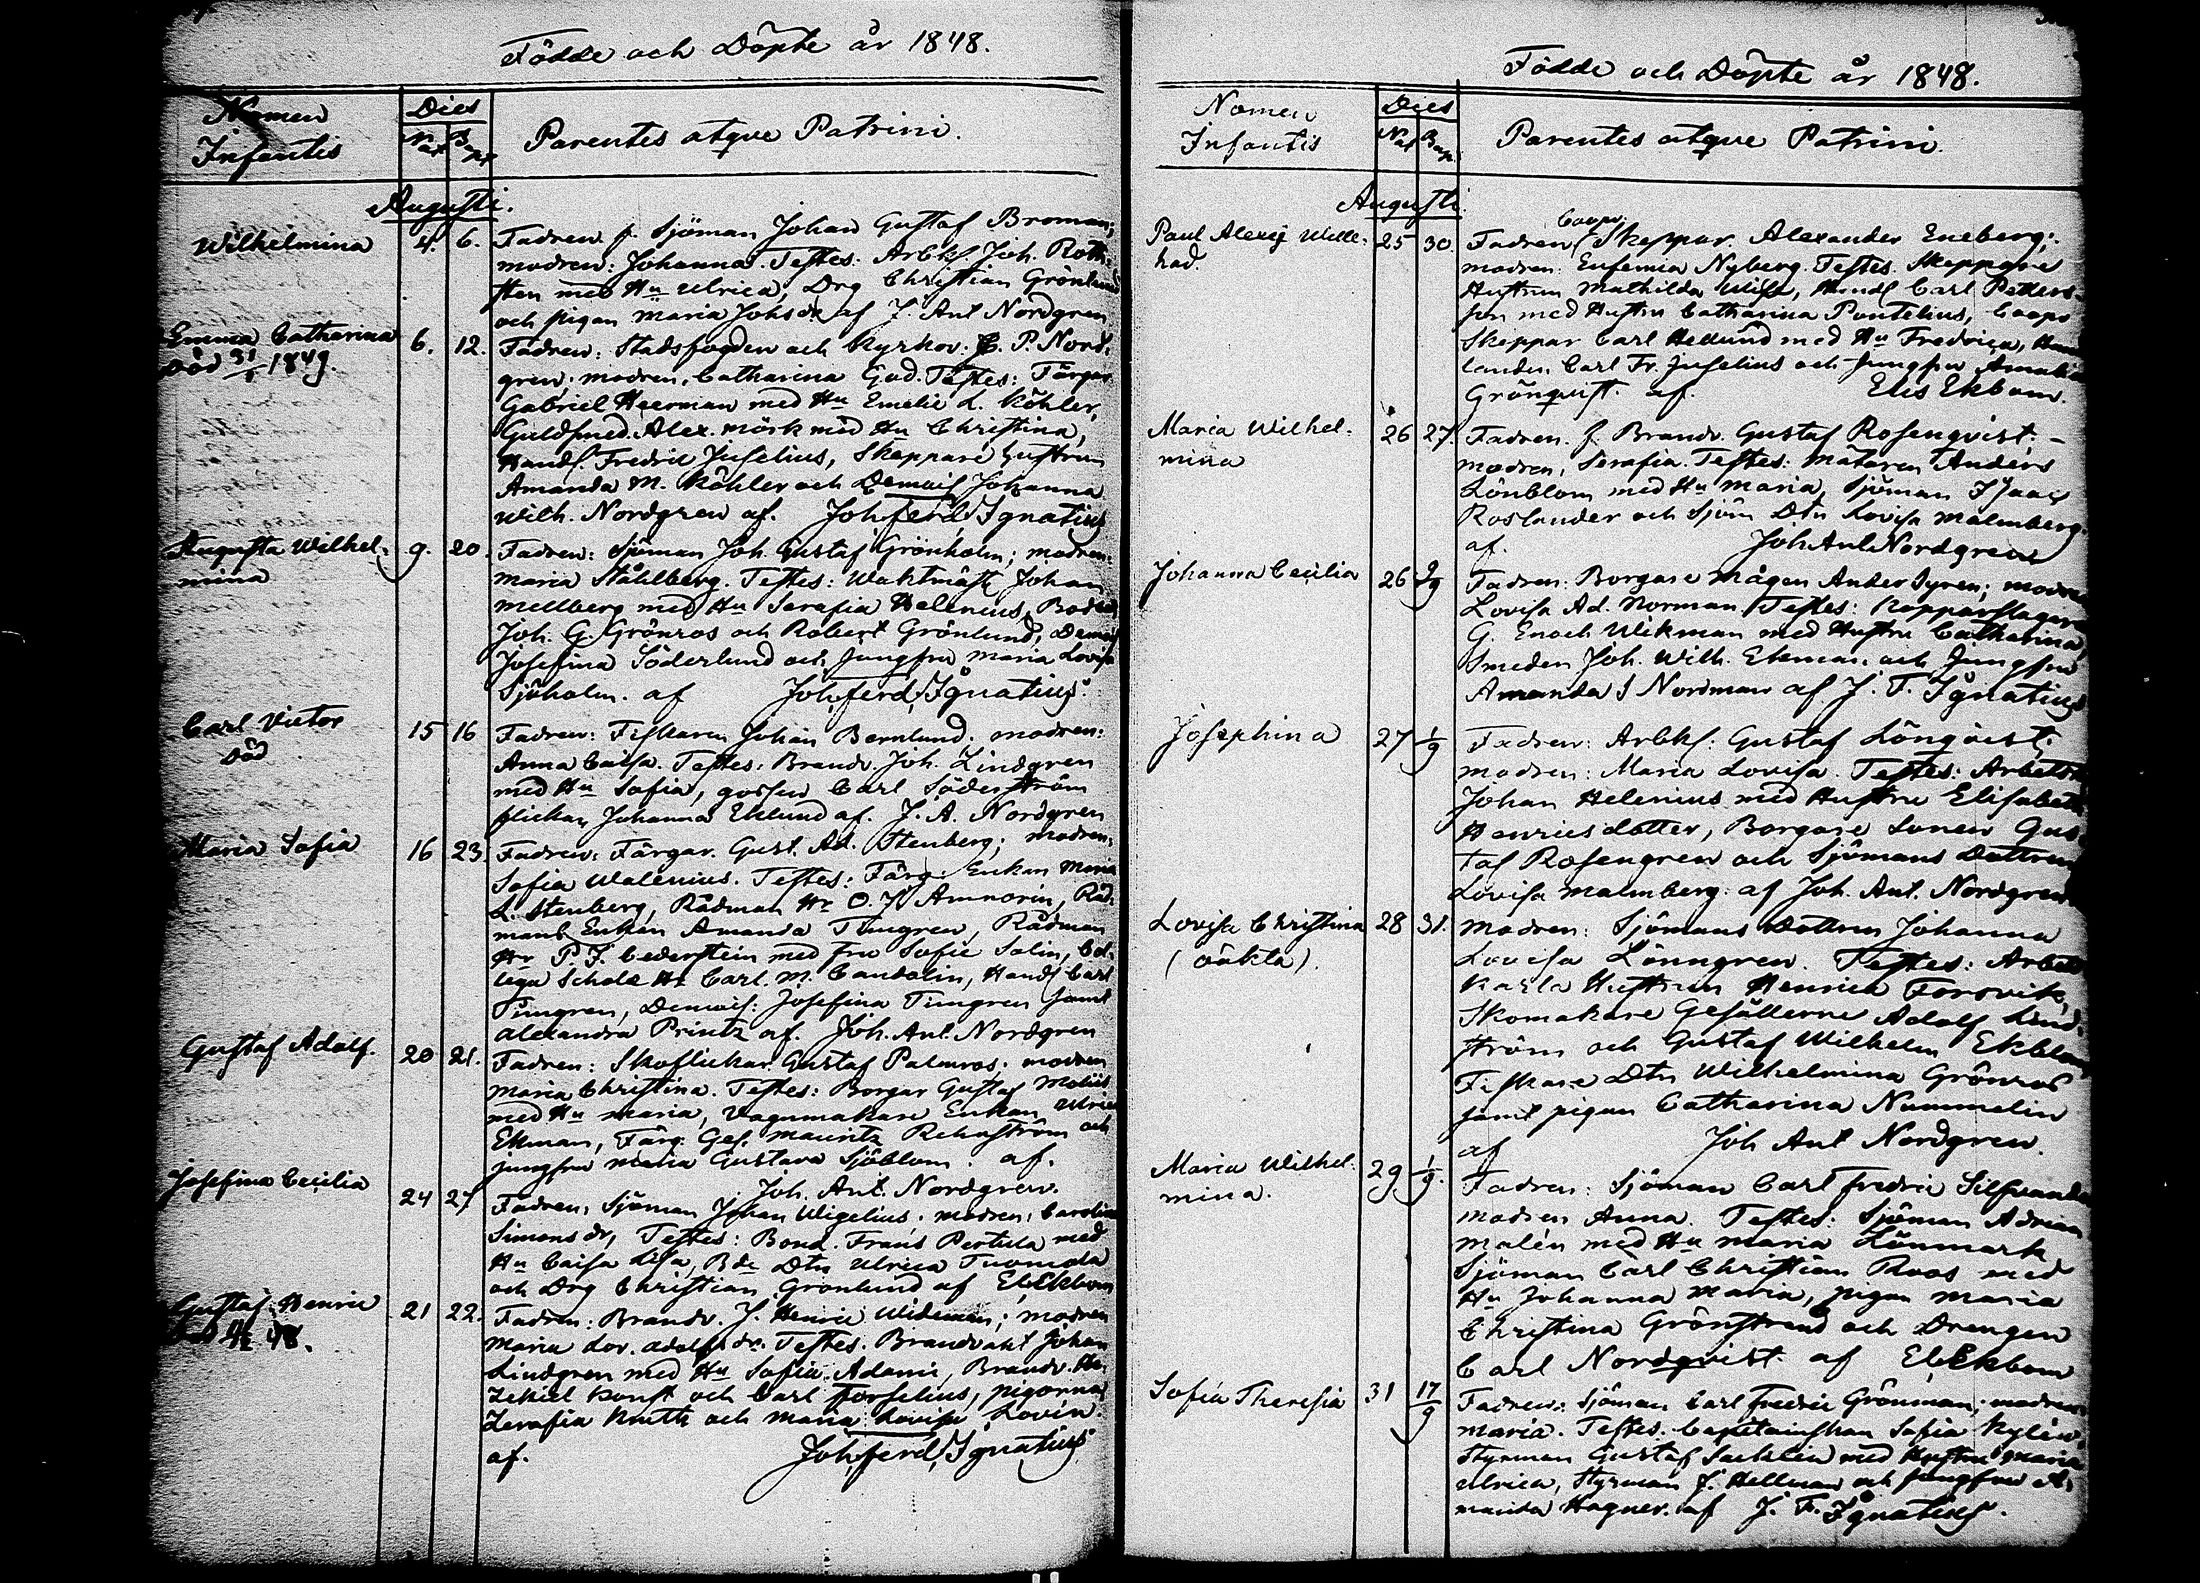 Födde och Döpte år 1848.
Nomen Infantis
Dies
Nat Bapt
Parentes atqve Patrini.
Augusti.
Wilhelmina 4. 6. Fadren f. Sjöman Johan Gustaf Broman;
modren: Johanna. Testes: Arbk. Joh. Roth-
sten med Hu Ulrica, Drg Christian Grönlund
och pigan Maria Johsdr af J. Ant Nordgren
Emma Catharina 6. 12. Fadren: Stadsfogden och Kyrkov: P. Nord-
död 31/ 1849. gren; modren, Catharina Gad. Testes: Färgar
Gabriel Heerman med Hu Emelie L. Köhler,
Guldsmed. Alex. Mörk med Hu Christina,
Handl. Fredric Juselius, Skeppare hustrun
Amanda M. Köhler och Demois Johanna
Wilh. Nordgren af. Joh. Ferd. Ignatius
Augusta Wilhel- 9. 20. Fadren: Sjöman Joh. Gustaf Grönholm; modren:
mina Maria Ståhlberg. Testes: Waktmäst Johan
Mellberg med Hu Serafia Helenius, Bods
Joh. G. Grönros och Robert Grönlund, Demois
Josefina Söderlund och Jungfru Maria Lovisa
Sjöholm. af Joh. Ferd. Ignatius.
Carl Victor 15 16 Fadren: Fiskaren Johan Bernlund; modren:
död Anna Caisa. Testes: Brandv. Joh. Lindgren
med Hu Sofia, gossen Carl Söderström
flickan Johanna Eklund af. J. A. Nordgren
Maria Sofia 16 23. Fadren: Färgar. Gust. Ad. Stenberg; modren:
Sofia Walenius. Testes: Färg: Enkan Maria
L. Stenberg, Rådman Hr O. W Amnorin, Råd-
mans Enkan Amanda Timgren, Rådman
Hr P. J. Cederstein med fru Sofie Solin, Col-
lega Scholæ Hr Carl. M. Candolin, Handl Carl
Timgren, Demois: Josefina Timgren samt
Alexandra Printz af. Joh. Ant. Nordgren
Gustaf Adolf. 20 21. Fadren: Skoflickar. Gustaf Palmros; modren
Maria Christina. Testes: Borgar Gustaf Moliis
med Hu Maria, Vagnmakare Enkan Ulrica
Ekman, Färg. Ges. Mauritz Rehnström och
jungfru Maria Gustava Sjöblom. af.
Joh. Ant. Nordgren.
Josefina Cecilia 24 27 Fadren, Sjöman Johan Wigelius; modren, Carolina
Simonsdr, Testes: Bond. Frans Pertula med
Hu Caisa Lisa, Bde Dtn Ulrica Tuomola
och Drg Christian Grönlund af El. Ekbom
Gustaf Henric 21 22. Fadren: Brandv. J. Henric Wideman; modren
48. Maria Lov. Adolfsdr. Testes. Brandvakt Johan
Lindgren med Hu Sofia Adami, Brandv. He-
zekiel Konst och Carl Forselius, pigorna
Zerafia Knuth och Maria Lovisa Lovin
af. Joh. Ferd. Ignatius
Födde och Döpte år 1848.
Nomen Infantis
Dies
Nat Bapt
Parentes atqve Patrini.
Augusti.
Paul Alexis Wille- 25 30. Fadren Coopv: Skeppar. Alexander Eneberg;
had. modren: Eufemia Nyberg. Testes. Skeppare
Hustrun Mathilda Wisa, Handl Carl Petters-
son med Hustru Catharina Pontelius, Coopv
Skeppar Carl Hellund med Hu Fredrica, Han-
landen Carl Fr. Juselius och Jungfru Amalia
Grönqvist. af. Elis Ekbom.
Maria Wilhel- 26 27. Fadren. f. Brandv. Gustaf Rosenqvist. –
mina modren, Serafia. Testes: Mätaren Anders
Lönblom med Hu Maria, Sjöman Isaac
Roslander och Sjöm Dtn Lovisa Malmberg
af. Joh Ant Nordgren
Johanna Cecilia 26 3/9 Fadren: Borgare Mågen Ander Syren; modren
Lovisa Ad. Norman Testes: Kopparslagare
G. Enoch Wikman med Hustru Catharina,
Smeden Joh. Wilh. Ekman. och Jungfru
Amanda S Nordman af J. F. Ignatius
Josephina 27 1/9 Fadren: Arbk: Gustaf Lönqvist;
modren: Maria Lovisa. Testes: Arbetsk
Johan Helenius med Hustru Elisabeth
Henricsdotter, Borgare Sonen Gus-
taf Rosengren och Sjömans Dottren
Lovisa Malmberg. af Joh. Ant. Nordgren
Lovisa Christina 28 31. Modren: Sjömans Dottren Johanna
(oäkta). Lovisa Lönngren. Testes: Arbets
Karla Hustrun Henrica Forsvik,
Skomakare Gesällerne Adolf Lind-
ström och Gustaf Wilhelm Ekblom
Fiskare Dtn Wilhelmina Grönros
samt pigan Catharina Nummelin
af Joh Ant Nordgren.
Maria Wilhel- 29 1/9. Fadren: Sjöman Carl Fredric Silfvander
mina. modren Anna. Testes: Sjöman Adrian
Malén med Hu Maria Lönmark
Sjöman Carl Christian Roos med
Hu Johanna Maria, pigan Maria
Christina Grönstrand och Drengen
Carl Nordqvist. af El. Ekbom
Sofia Theresia 31 17/9 Fadren: Sjöman Carl Fredric Grönman; modren
Maria. Testes. Capitainskan Sofia Nylén,
Styrman Gustaf Sacklén med Hustru Maria
Ulrica, Styrman J. Hellman och Jungfru A-
manda Hagner. af J. F. Ignatius.